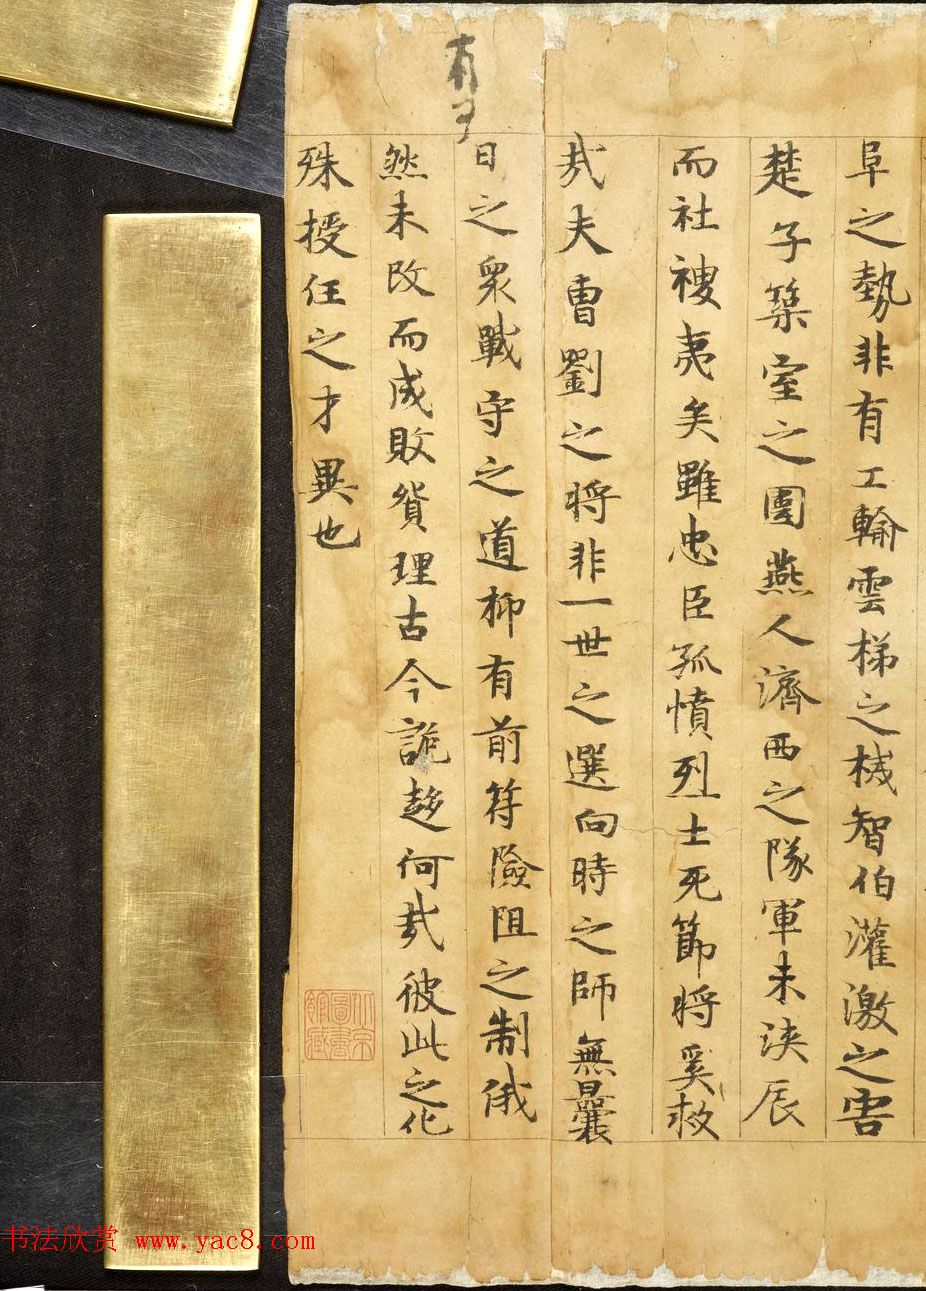 阜之勢非有工輸雲梯之械智伯灌激之害
楚子築室之圍燕人濟西之隊軍未浹辰
而社稷夷矣雖忠臣孤憤烈士死節将奚救
哉夫曹劉之将非一世之選向時之師無曩
日之衆戰守之道抑有前符險阻之制俄
然未改而成敗貿理古今詭趍何哉彼此之化
殊授任之才異也
有
北京圖書館藏
书法欣赏 www.yac8.com